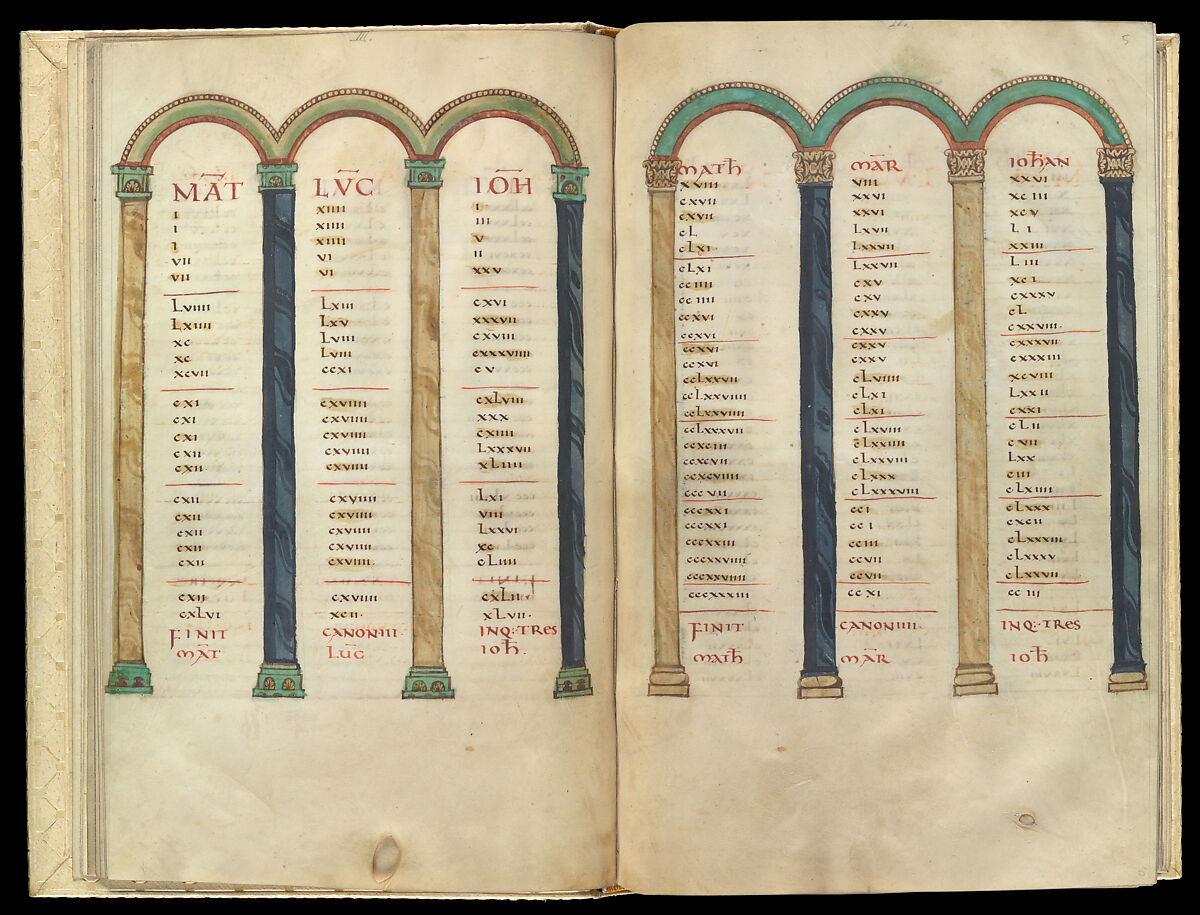 III.
MĀT LV̄C IŌH
I XIIII I
I XIIII III
I XIIII V
VII VI II
VII VI XXV
LVIIII LXIII CXVI
LXIIII LXV XXXVII
XC LVIII CXVIII
XC LVIII CXXXVIIII
XCVII CCXI CV
CXI CXVIIII CXLVIII
CXI CXVIIII XXX
CXI CXVIIII CXIIII
CXII CXVIIII LXXXVII
CXII CXVIIII XLIIII
CXII CXVIIII LXI
CXII CXVIIII VIII
CXII CXVIIII LXXVI
CXII CXVIIII XC
CXII CXVIIII. CLIIII
CXII CXVIIII CXLII·
CXLVI XCII· XLVII·
FINIT CANON·III· INQ:·TRES
MĀT LŪC IOH̄.
5
MATH̄ MĀR IOH̄AN
XVIII VIII XXVI
CXVII XXVI XCIII
CXVII XXVI XCV
CL LXVII LI
CLXI LXXVII XXIII
CLXI LXXVII LIII
CCIIII CXV XCI
CCIIII CXV CXXXV
CCXVI CXXV CL
CCXVI CXXV CXXVIII
CCXVI CXXV CXXXVII
CCXVI CXXV CXXXIII
CCLXXVII CLVIIII XCVIII
CCLXXVIIII CLXI LXXII
CCLXXVIIII CLXI CXXI
CCLXXXVII CLXVIII CLII
CCXCIII CLXXIIII CVII
CCXCVII CLXXVIII LXX
CCXCVIIII CLXXX CIII
CCCVII CLXXXVIII CLXIIII
CCCXXI CCI CLXXX
CCCXXI CCI CXCII
CCCXXIII CCIII CLXXXIII
CCCXXVIIII CCVII CLXXXV
CCCXXVIIII CCVII CLXXVII
CCCXXXIII CCXI CCIII
FINIT CANON·IIII· INQ:·TRES
MATH̄ MĀR IOH̄